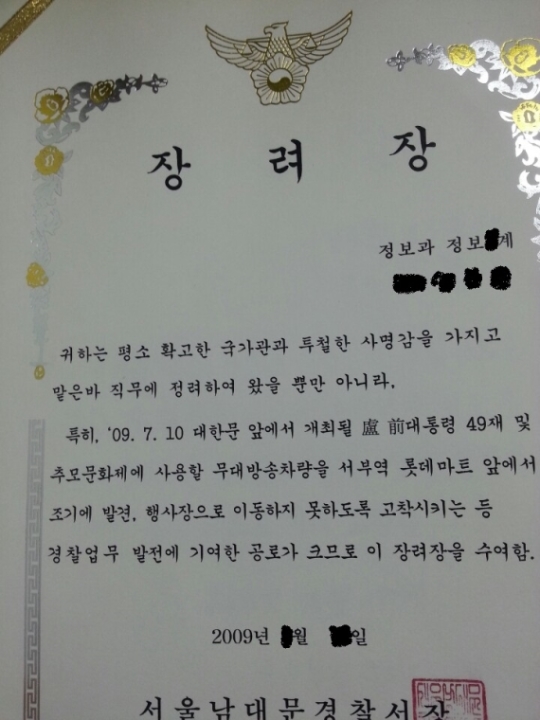 장 려 장
정보과 정보 계
귀하는 평소 확고한 국가관과 투철한 사명감을 가지고
맡은바 직무에 정려하여 왔을 뿐만 아니라,
특히, '09. 7. 10 대한문 앞에서 개최될 盧 前대통령 49재 및
추모문화제에 사용할 무대방송차량을 서부역 롯데마트 앞에서
조기에 발견, 행사장으로 이동하지 못하도록 고착시키는 등
경찰업무 발전에 기여한 공로가 크므로 이 장려장을 수여함.
2009년 월 일
서울남대문경찰서장